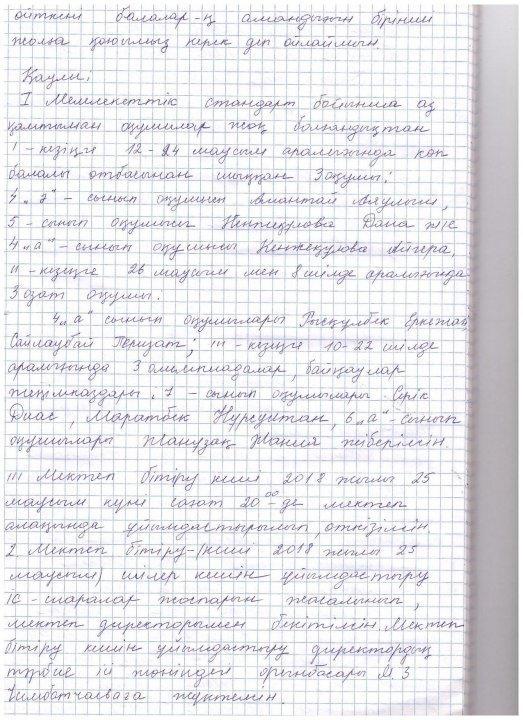 өйткені балалар-ң амандығын бірінші
жолға қоюымыз керек деп ойлаймын.
Қаулы:
I Мемлекеттік стандарт бойынша аз
қамтылған оқушылар жоқ болғандықтан
I - кезеңге 12-24 маусым аралығында көп
балалы отбасынан шыққан 3 оқушы:
4 „ә" - сынып оқушысы Амантай Аяулым,
5 - сынып оқушысы Дана және
4 „а" - сынып оқушысы Кенжеқұлова Айгера,
II - кезеңге 26 маусым мен 8 шілде аралығында
3 озат оқушы.
4 „а" сынып оқушылары Рысқұлбек Еркежан,
Сайлаубай Перизат; III - кезеңге 10-22 шілде
аралығында 3 олимпиадалар, байқаулар
жеңімпаздары. 7 - сынып оқушылары Серік
Диас, Маратбек Нұрсұлтан, 6 „а" - сынып
оқушылары Жанұзақ Жания жіберілсін.
III Мектеп бітіру кеші 2018 жылы 25
маусым күні сағат 20⁰⁰-де мектеп
алаңында ұйымдастырылып, өткізілсін.
2. Мектеп бітіру - (кеші 2018 жылы 25
маусым) шілер кешін ұйымдастыру
іс - шаралар жоспары жасалынып,
мектеп директорымен бекітілсін. Мектеп
бітіру кешін ұйымдастыру директордың
тәрбие ісі жөніндегі орынбасары М. З
жүктелсін.